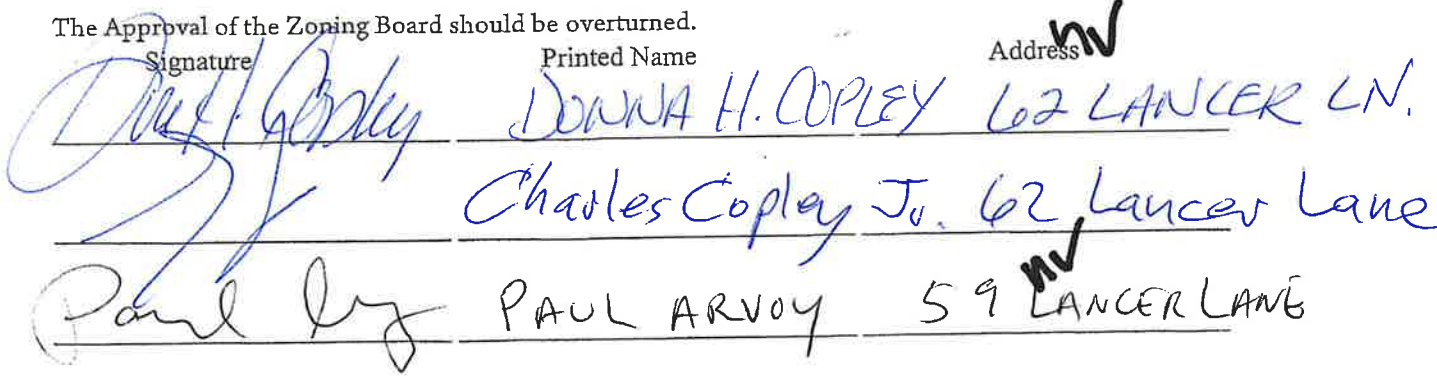 The Approval of the Zoning Board should be overturned.
Signature Printed Name Address nv
DONNA H. COPLEY 62 LANCER LN.
Charles Copley Jr. 62 Lancer Lane
nv
Paul PAUL ARVOY 59 LANCER LANE